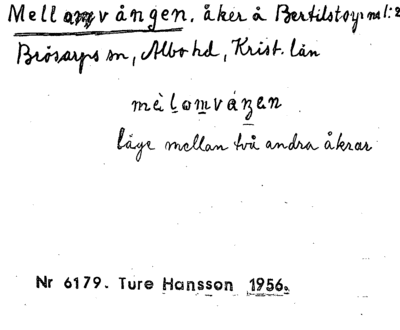 Mellomvången. åker å Bertilstorp nr 1:2
Brösarps sn, Albo hd, Krist. län
mèlomváŋen
läge mellan två andra åkrar
Nr 6179. Ture Hansson 1956.